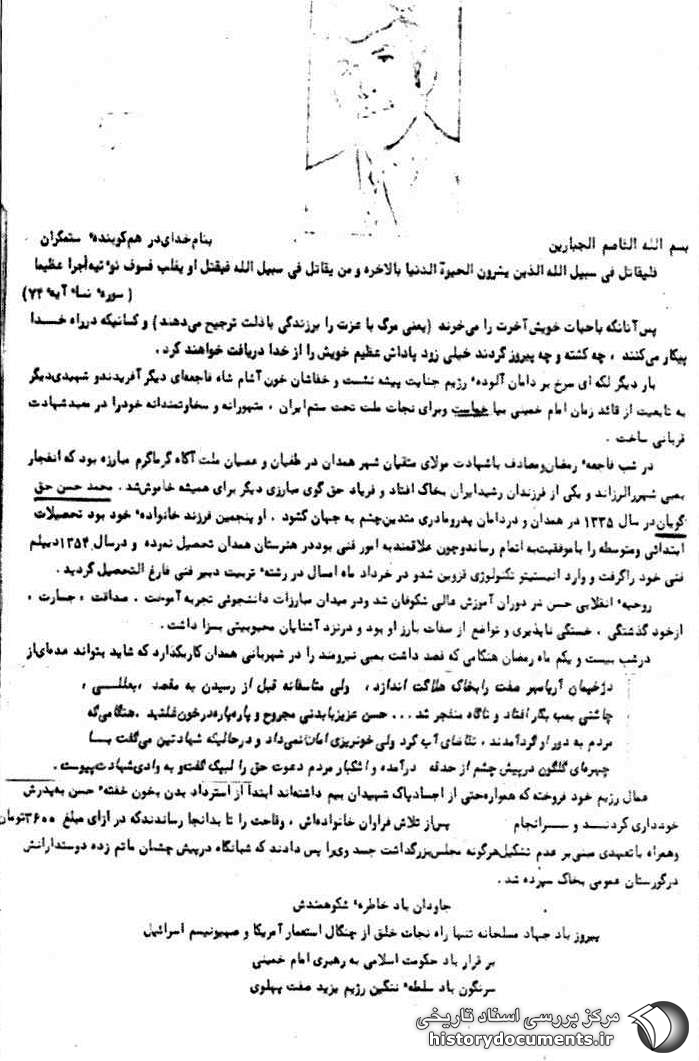 بسم الله القاصم الجبارین بنام خدای در هم کوبندهٔ ستمگران
فلیقاتل فی سبیل الله الذین یشرون الحیوة الدنیا بالاخره و من یقاتل فی سبیل الله فیقتل او یغلب فسوف نوٴتیه أجرا عظیما
( سورهٔ نساء آیهٔ ۷۴ )
پس آنانکه باحیات خویش آخرت را می‌خرند (یعنی مرگ با عزت را برزندگی باذلت ترجیح می‌دهند) و کسانیکه درراه خدا
پیکار می‌کنند ، چه کشته و چه پیروز گردند خیلی زود پاداش عظیم خویش را از خدا دریافت خواهند کرد .
بار دیگر لکه ای سرخ بر دامان آلودهٔ رژیم جنایت پیشه نشست و خفاشان خون آشام شاه فاجعه‌ای دیگر آفریدندو شهیدی‌دیگر
به تابعیت از قائد زمان امام خمینی بپا خواست وبرای نجات ملت تحت ستم‌ایران ، متهورانه و سخاوتمندانه خودرا در معبدشهادت
قربانی ساخت .
در شب فاجعهٔ رمضان‌ومصادف باشهادت مولای متقیان شهر همدان در طغیان و عصیان ملت آگاه گرماگرم مبارزه بود که انفجار
بمبی شهررالرزاند و یکی از فرزندان رشیدایران بخاک افتاد و فریاد حق گوی مبارزی دیگر برای همیشه خاموش‌شد . محمد حسن حق
گویان‌در سال ۱۳۳۵ در همدان و دردامان پدرومادری متدین‌چشم به جهان گشود . او پنجمین فرزند خانوادهٔ خود بود تحصیلات
ابتدائی ومتوسطه را باموفقیت‌به اتمام رساندوچون علاقمندبه امور فنی بوددر هنرستان همدان تحصیل نموده و درسال ۱۳۵۴دیپلم
فنی خود راگرفت و وارد انیستیتو تکنولوژی قزوین شدو در خرداد ماه امسال در رشتهٔ تربیت دبیر فنی فارغ التحصیل گردید .
روحیهٔ انقلابی حسن در دوران آموزش عالی شکوفان شد ودر میدان مبارزات دانشجوئی تجربه آموخت . صداقت ، جسارت ،
ازخود گذشتگی ، خستگی ناپذیری و تواضع از صفات بارز او بود و درنزد آشنایان محبوبیتی بسزا داشت .
درشب بیست و یکم ماه رمضان هنگامی که قصد داشت بمبی نیرومند را در شهربانی همدان کاربگذارد که شاید بتواند عده‌ای‌از
دژخیمان آریامهر صفت رابخاک هلاکت اندازد ، ولی متاسفانه قبل از رسیدن به مقصد ،بعللی ،
چاشنی بمب بکار افتاد و ناگاه منفجر شد ... حسن عزیزبابدنی مجروح و پاره‌پاره‌درخون‌غلطید .هنگامی‌که
مردم به دور او گردآمدند ، تقاضای آب کرد ولی خونریزی امانش‌نمی‌داد و درحالیکه شهادتین می‌گفت با
چهره‌ای گلگون درپیش چشم از حدقه درآمده و اشکبار مردم دعوت حق را لبیک گفت‌و به وادی‌شهادت‌پیوست .
عمال رژیم خود فروخته که همواره‌حتی از اجسادپاک شهیدان بیم داشته‌اند ابتدا از استرداد بدن بخون خفتهٔ حسن به‌پدرش
خودداری کردند و سرانجام پس‌از تلاش فراوان خانواده‌اش ، وقاحت را تا بدانجا رساندندکه در ازای مبلغ ۳۶۰۰تومان
وهمراه باتعهدی مبنی‌بر عدم تشکیل‌هرگونه مجلس‌بزرگداشت جسد وی‌را پس دادند که شبانگاه درپیش چشمان ماتم زده دوستدارانش
درگورستان عمومی بخاک سپرده شد .
جاودان باد خاطرهٔ شکوهمندش
پیروز باد جهاد مسلحانه تنها راه نجات خلق از چنگال استعمار آمریکا و صهیونیسم اسرائیل
بر قرار باد حکومت اسلامی به رهبری امام خمینی
سرنگون باد سلطهٔ ننگین رژیم یزید صفت پهلوی
مرکز بررسی اسناد تاریخی
historydocuments.ir